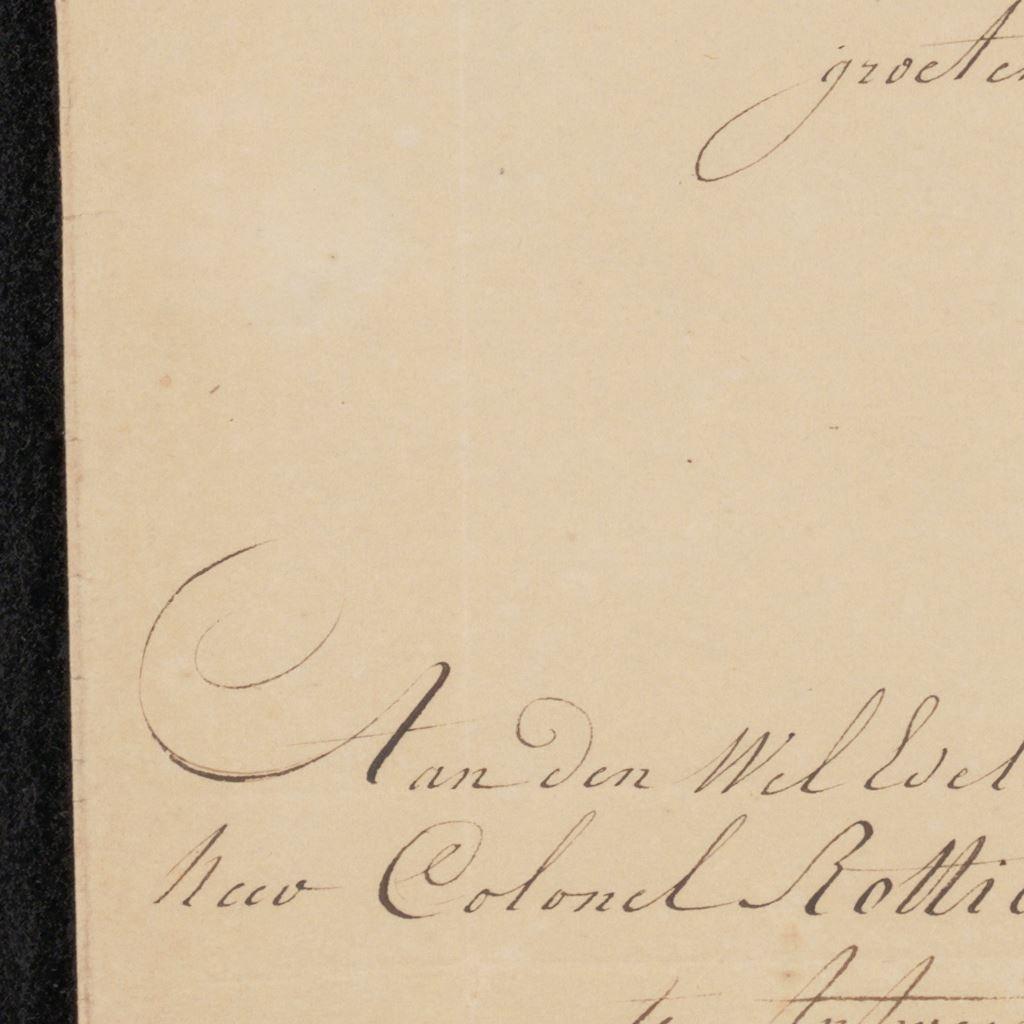 groeten
Aan den Wel Edel
heer Colonel Rottie
te Antwer